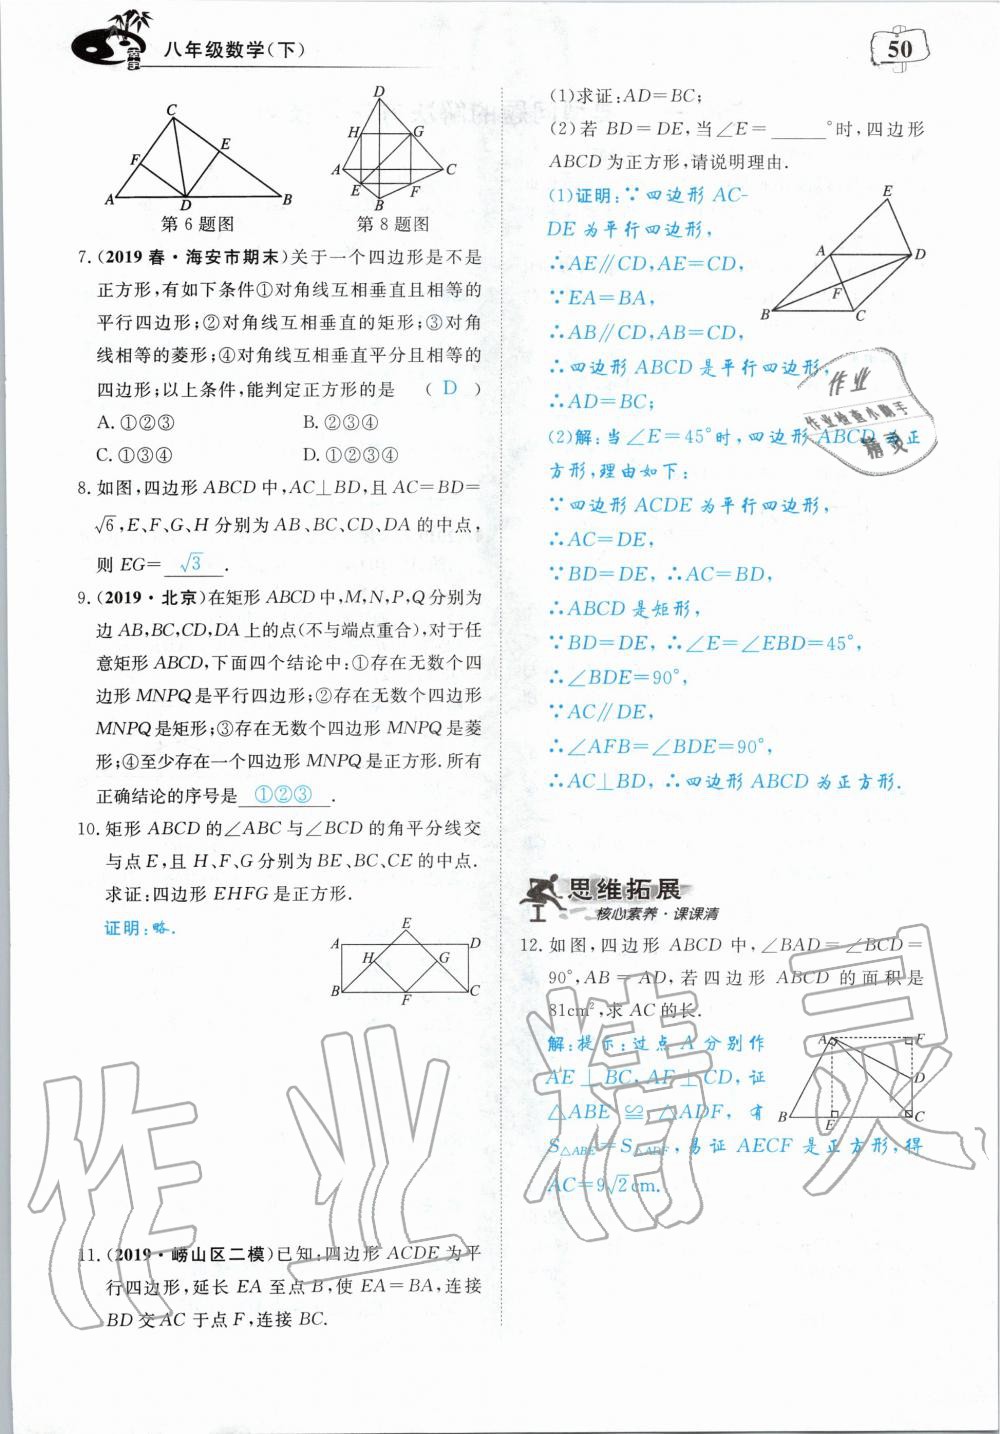 八年级数学(下)
50
第6题图
第8题图
7.(2019春·海安市期末)关于一个四边形是不是
正方形,有如下条件①对角线互相垂直且相等的
平行四边形;②对角线互相垂直的矩形;③对角
线相等的菱形;④对角线互相垂直平分且相等的
四边形;以上条件,能判定正方形的是 ( D )
A.①②③ B.②③④
C.①③④ D.①②③④
8. 如图,四边形ABCD中,AC⊥BD,且AC=BD=
√6,E、F、G、H分别为AB、BC、CD、DA的中点,
则EG=√3.
9.(2019·北京)在矩形ABCD中,M,N,P,Q分别为
边AB,BC,CD,DA上的点(不与端点重合),对于任
意矩形ABCD,下面四个结论中:①存在无数个四
边形MNPQ是平行四边形;②存在无数个四边形
MNPQ是矩形;③存在无数个四边形MNPQ是菱
形;④至少存在一个四边形MNPQ是正方形.所有
正确结论的序号是①②③.
10. 矩形ABCD的∠ABC与∠BCD的角平分线交
与点E,且H、F、G分别为BE、BC、CE的中点.
求证:四边形EHFG是正方形.
证明:略.
11.(2019·崂山区二模)已知:四边形ACDE为平
行四边形,延长EA至点B,使EA=BA,连接
BD交AC于点F,连接BC.
(1)求证:AD=BC;
(2)若BD=DE,当∠E=______°时,四边形
ABCD为正方形,请说明理由.
(1)证明:∵四边形AC-
DE为平行四边形,
∴AE∥CD,AE=CD,
∵EA=BA,
∴AB∥CD,AB=CD,
∴四边形ABCD是平行四边形,
∴AD=BC;
(2)解:当∠E=45°时,四边形ABCD为正
方形,理由如下:
∵四边形ACDE为平行四边形,
∴AC=DE,
∵BD=DE,∴AC=BD,
∴ABCD是矩形,
∵BD=DE,∴∠E=∠EBD=45°,
∴∠BDE=90°,
∵AC∥DE,
∴∠AFB=∠BDE=90°,
∴AC⊥BD,∴四边形ABCD为正方形.
思维拓展
核心素养·课课清
12. 如图,四边形ABCD中,∠BAD=∠BCD=
90°,AB=AD,若四边形ABCD的面积是
81cm²,求AC的长.
解:提示:过点A分别作
AE⊥BC,AF⊥CD,证
△ABE≌△ADF,有
S△ABE=S△ADF,易证AECF是正方形,得
AC=9√2cm.
作业
作业检查小助手
精灵
作业精灵